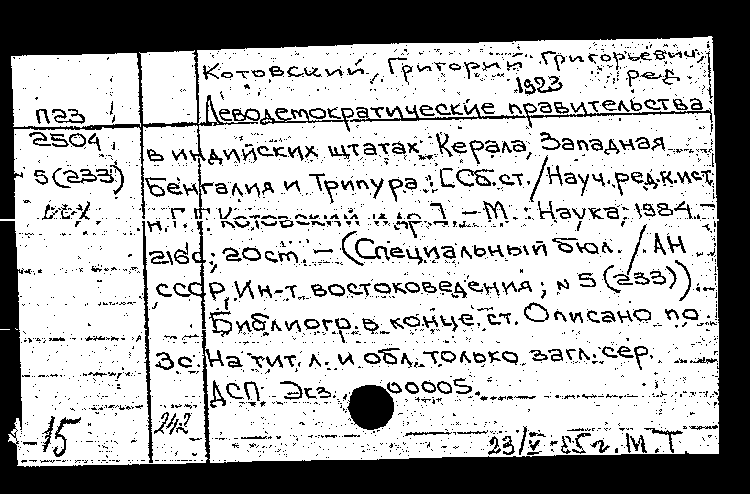 Котовский, Григорий Григорьевич,
1923 ред.
П23 Леводемократические правительства
2504 в индийских штатах Керала, Западная
5(233) Бенгалия и Трипура: [Сб.ст. / Науч.ред.к.ист.
н. Г.Г. Котовский и др.]. – М.: Наука, 1984. –
216с.; 20см. – (Специальный бюл. / АН
СССР, Ин-т востоковедения; N 5 (233)).
Библиогр. в конце ст. Описано по
3с. На тит. л. и обл. только загл. сер.
ДСП Экз. 00005.
-15 242
23/V-85г. М.Т.